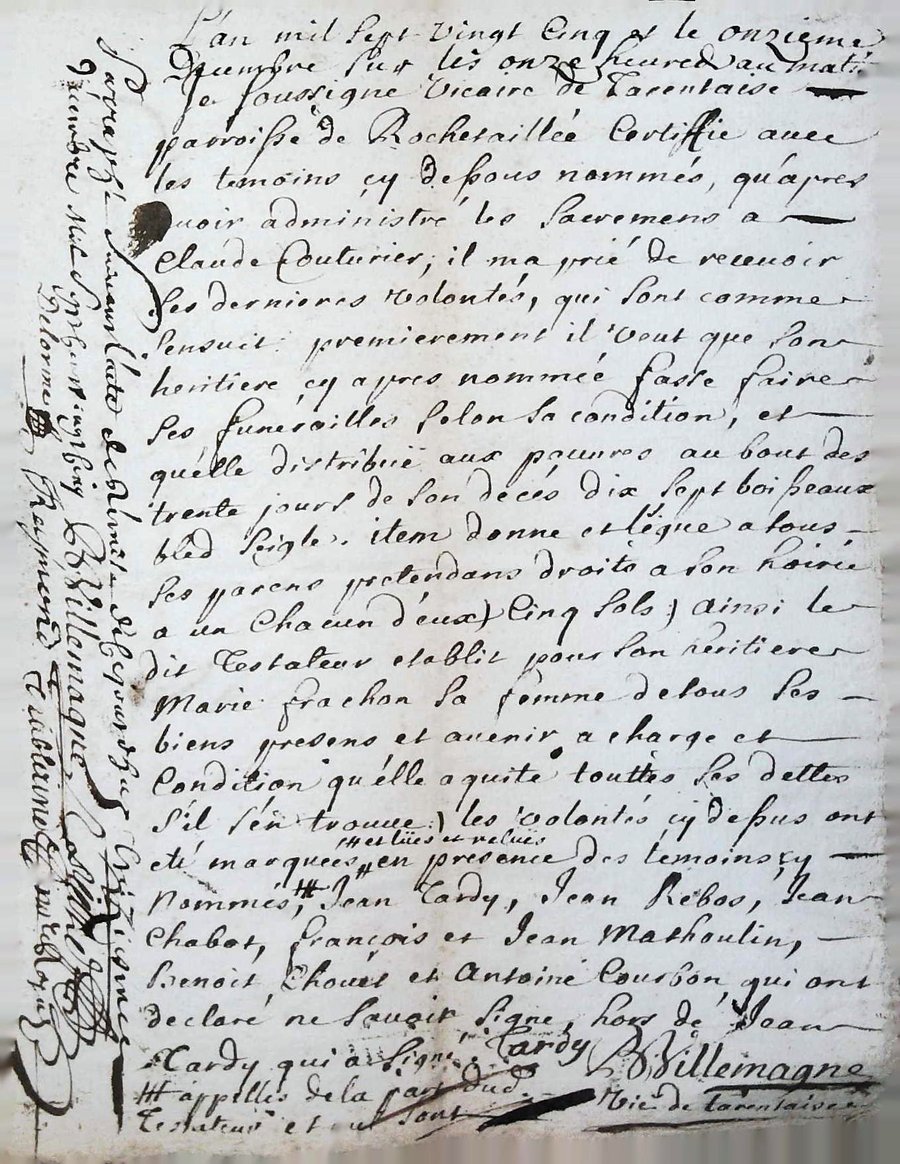 L'an mil sept vingt Cinq et le onzieme
Decembre sur les onze heures au matin
Je soussigne Vicaire de Tarentaise
parroisse de Rochetaillée Certiffie avec
les temoins cy dessous nommés, qu'apres
avoir administré les sacremens a
Claude Couturier, il ma prié de recevoir
ses dernieres volontés, qui sont comme
sensuit. premierement il veut que son
heritiere cy apres nommée fasse faire
ses funerailles selon sa condition, et
qu'elle distribue aux pauvres au bout des
trente jours de son decés dix sept boisseaux
bled seigle. item donne et legue a tous
ses parens pretendans droits a son hoirie
a un Chacun d'eux Cinq sols; ainsi le
dit Testateur etablit pour son heritiere
Marie frachon sa femme de tous ses
biens presens et avenir a charge et
Condition qu'elle aquite touttes ses dettes
s'il s'en trouve; les volontés cy dessus ont
eté marquées # et lües et relües en presence des temoins cy
Nommés, # Jean Tardy, Jean Rebos, Jean
Chabot, françois et Jean Mathoulin,
Benoit Chouet et Antoine Courbon qui ont
declaré ne savoir signe, hors de Jean
Tardy qui a signé. Tardy BVillemagne
# appellés de la part dud. Vic. de Tarentaise
Testateur et sont
Parraphé suivant l'acte de
Decembre Mil Sept cent vingt cinq BVillemagne
Delorme